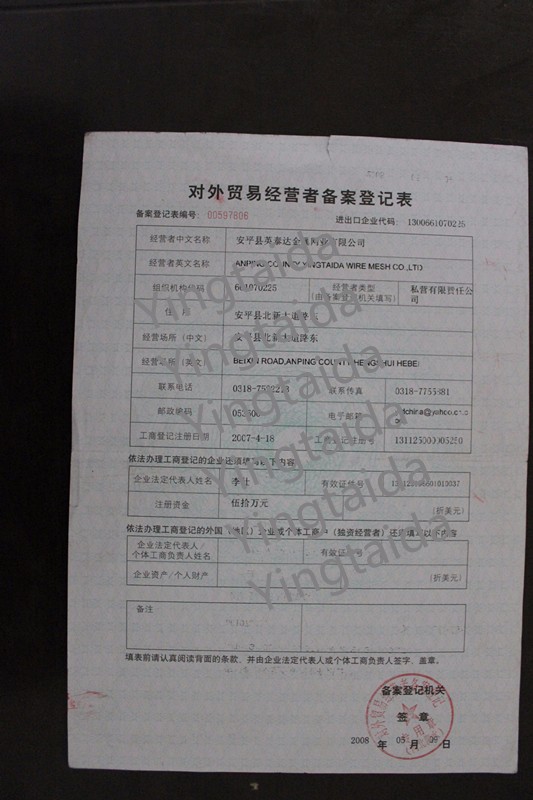 对外贸易经营者备案登记表
备案登记表编号: 00597806
进出口企业代码: 1300661070225
经营者中文名称 安平县英泰达金属网业有限公司
经营者英文名称 ANPING COUNTY YINGTAIDA WIRE MESH CO.,LTD
组织机构代码 661070225 经营者类型 (由备案登记机关填写) 私营有限责任公司
住 所 安平县北新大道路东
经营场所(中文) 安平县北新大道路东
经营场所(英文) BEIXIN ROAD,ANPING COUNTY,HENGSHUI HEBEI
联系电话 联系传真
邮政编码 053600 电子邮箱
工商登记注册日期 2007-4-18 工商登记注册号
依法办理工商登记的企业还须填写以下内容
企业法定代表人姓名 有效证件号
注册资金 伍拾万元 (折美元)
依法办理工商登记的外国(地区)企业或个体工商户(独资经营者)还须填写以下内容
企业法定代表人/
个体工商负责人姓名 有效证件号
企业资产/个人财产 (折美元)
备注
填表前请认真阅读背面的条款、并由企业法定代表人或个体工商负责人签字、盖章。
备案登记机关
签 章
2008 年 05 月 日
Yingtaida
Yingtaida
Yingtaida
Yingtaida
Yingtaida